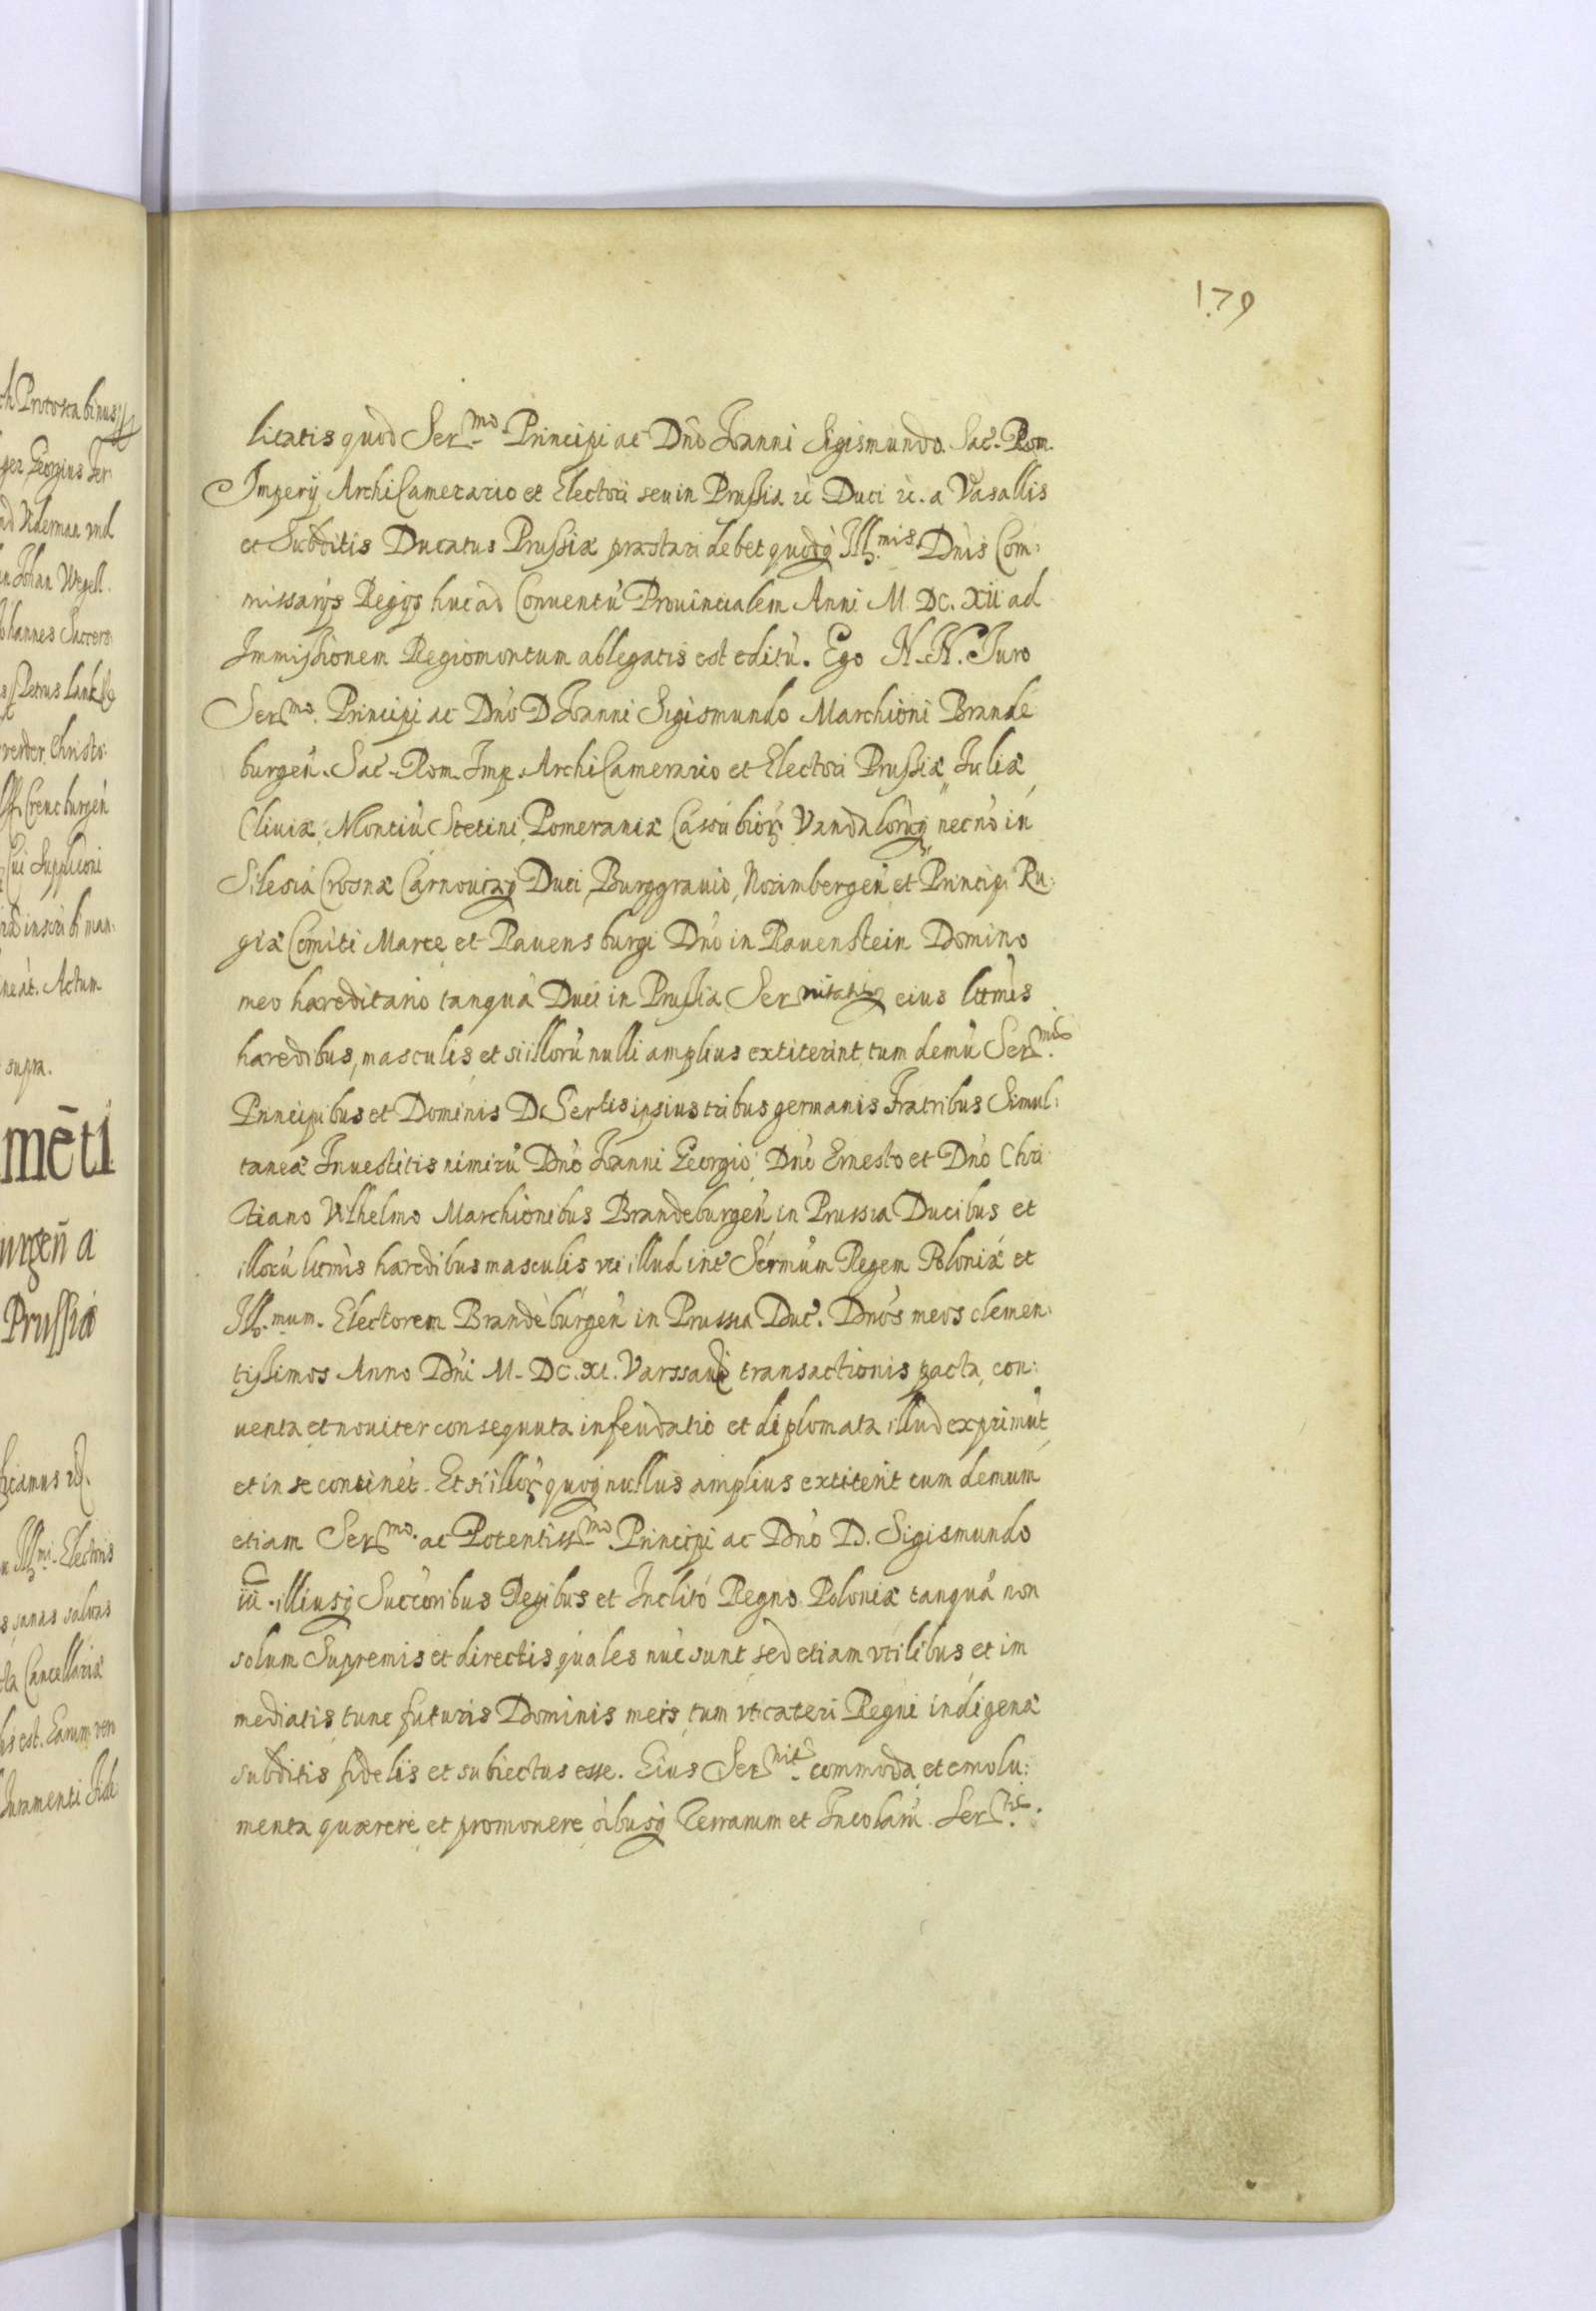 179
litatis quod Ser.mo Principi ac Dno Joanni Sigismundo. Sac. Rom.
Imperij ArchiCamerario et Electori seu in Prussia rc. Duci rc. a Vasallis
et Subditis Ducatus Prussiæ præstari debet quodq Ill.mis Dnis Com:
missarijs Regijs huc ad Conventũ Provincialem Anni M. DC. XII ad
Immissionem Regiomontum ablegatis est editũ. Ego N. N. Juro
Ser.mo Principi ac Dno D Joanni Sigismundo Marchioni Brande
burgeñ. Sac. Rom. Imp. ArchiCamerario et Electori Prussiæ, Juliæ,
Cliviæ, Montiũ Stetini, Pomeraniæ Cassubior Vandalorũq necnõ in
Silesia Crosnæ Carnoviæq Duci, Burggravio, Norimbergeñ et Principi Ru:
giæ Comiti Marce et Ravensburgi Dno in Ravenstein Domino
meo hæreditario tanquã Duci in Prussia Sernitatisq eius lttmis
hæredibus, masculis, et si illorũ nulli amplius extiterint, tum demũ Ser.mis
Principibus et Dominis D. Sertis ipsius tribus germanis Fratribus Simul:
taneã Investitis nimirũ Dno Joanni Georgio, Dno Ernesto et Dno Chri
stiano Vilhelmo Marchionibus Brandeburgeñ in Prussia Ducibus et
illorũ lttmis hæredibus masculis vti illud intr Sermum Regem Poloniæ et
Ill.mum. Electorem Brandeburgeñ in Prussia Duc. Dnos meos clemen:
tissimos Anno Dni M. DC. XI. Varssavie transactionis pacta, con:
venta et noviter consequuta infeudatio et diplomata illud exprimũt,
et in se continẽt. Et si illor quoq nullus amplius extiterit tum demum
etiam Ser.mo ac Potentiss.mo Principi ac Dno D. Sigismundo
III. illiusq Succoribus Regibus et Inclito Regno Poloniæ tanquã non
solum Supremis et directis quales nũc sunt, sed etiam vtilibus et im
mediatis tunc futuris Dominis meis, tum vt cæteri Regni indigenæ
subditis fidelis et subiectus esse. Eius Sernit. commoda, et emolu:
menta quærere et promovere oibusq Terrarum et Incolarũ Ser.tis